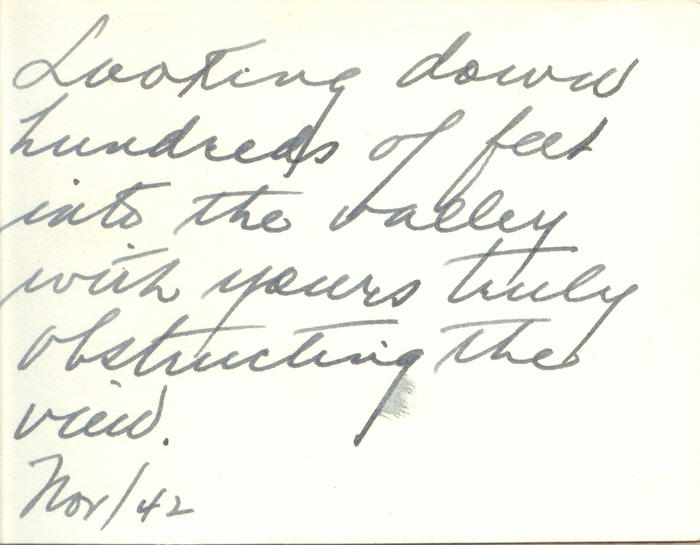 Looking down
hundreds of feet
into the valley
with yours truly
obstructing the
view.
Nov/42